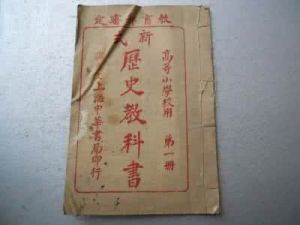 教育部審定
高等小學校用 第一册
新式
歷史教科書
上海中華書局印行